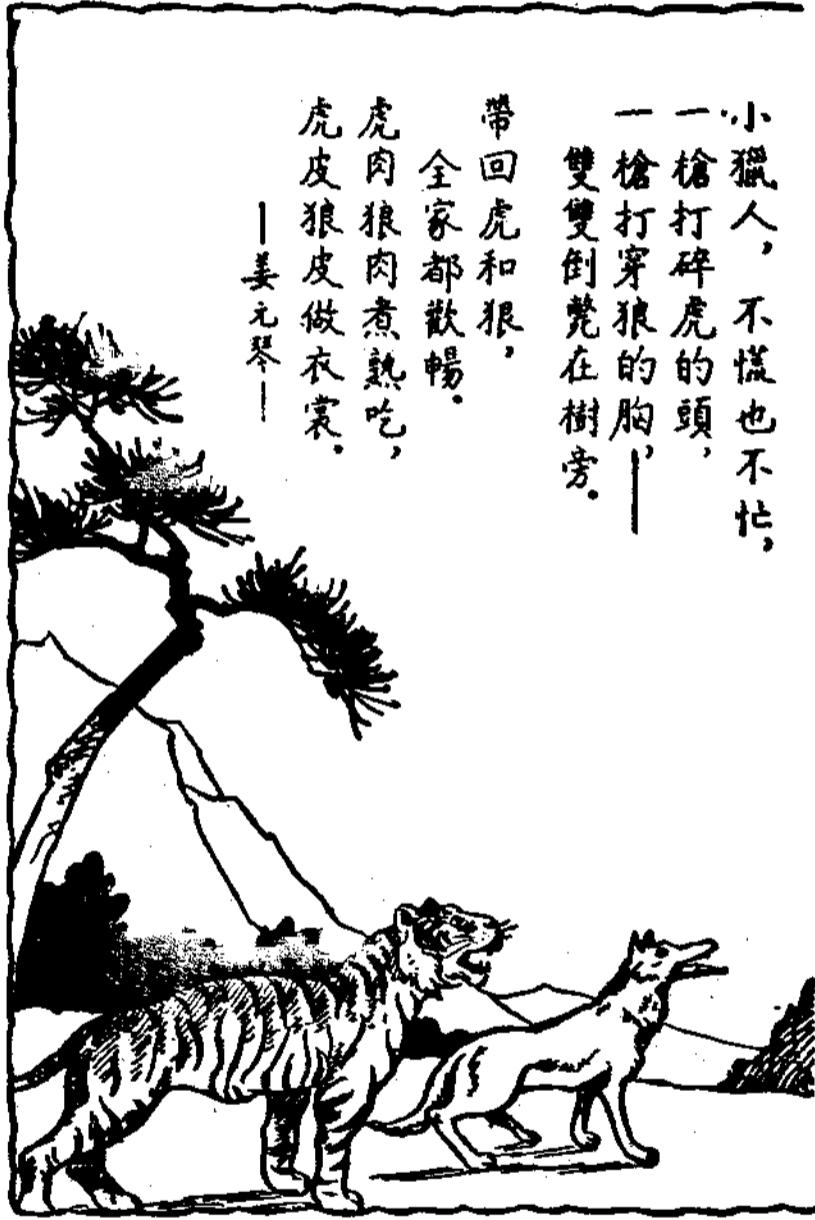 小獵人，不慌也不忙，
一槍打碎虎的頭，
一槍打穿狼的胸，——
雙雙倒斃在樹旁。
帶回虎和狠，
全家都歡暢。
虎肉狼肉煮熟吃，
虎皮狼皮做衣裳。
——姜元琴——